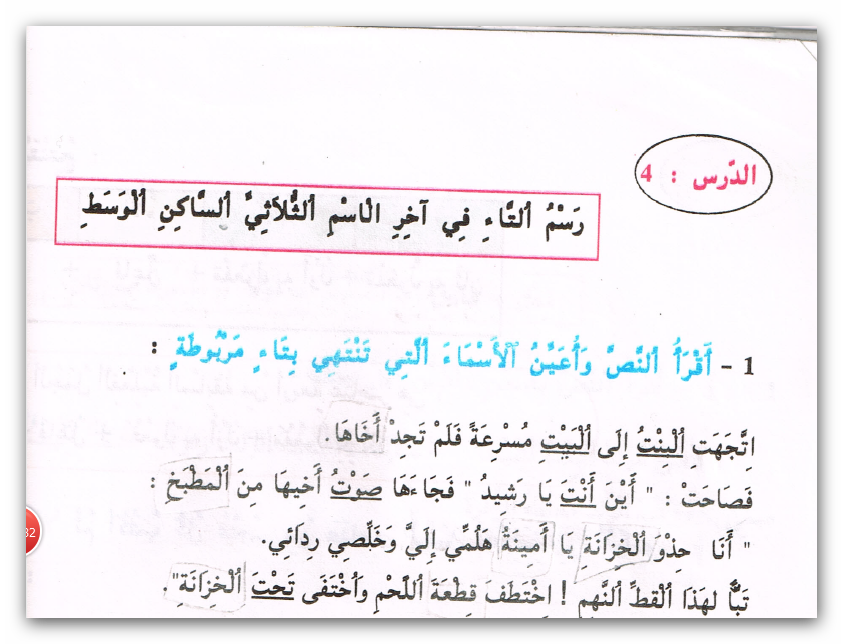 الدّرس : 4
رَسْمُ ٱلتَّاءِ فِي آخِرِ الاسْمِ ٱلثُّلاَثِيِّ ٱلسَّاكِنِ ٱلْوَسَطِ
1 - أَقْرَأُ ٱلنَّصَّ وَأُعَيِّنُ ٱلأَسْمَاءَ ٱلَّتِي تَنْتَهِي بِتَاءٍ مَرْبُوطَةٍ :
اِتَّجَهَتِ ٱلْبِنْتُ إِلَى ٱلْبَيْتِ مُسْرِعَةً فَلَمْ تَجِدْ أَخَاهَا.
فَصَاحَتْ : " أَيْنَ أَنْتَ يَا رَشِيدُ " فَجَاءَهَا صَوْتُ أَخِيهَا مِنَ ٱلْمَطْبَخِ :
" أَنَا حِذْوَ ٱلْخِزَانَةِ يَا أَمِينَةُ هَلُمِّي إِلَيَّ وَخَلِّصِي رِدَائِي.
تَبًّا لِهَذَا ٱلْقِطِّ ٱلنَّهِمِ ! اخْتَطَفَ قِطْعَةَ ٱللَّحْمِ وَٱخْتَفَى تَحْتَ ٱلْخِزَانَةِ".
32